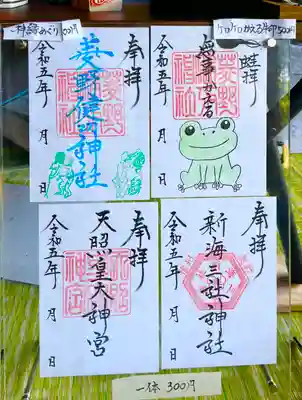 一神詣めぐり 100円
奉拝
菱野健功神社
菱野
神社
令和五年 月 日
ケロケロかえる朱印 500円
蛙拝
無事かえる
菱野
神社
令和五年 月 日
奉拝
天照皇大神宮
令和五年 月 日
奉拝
新海三社神社
令和五年 月 日
一体 300円